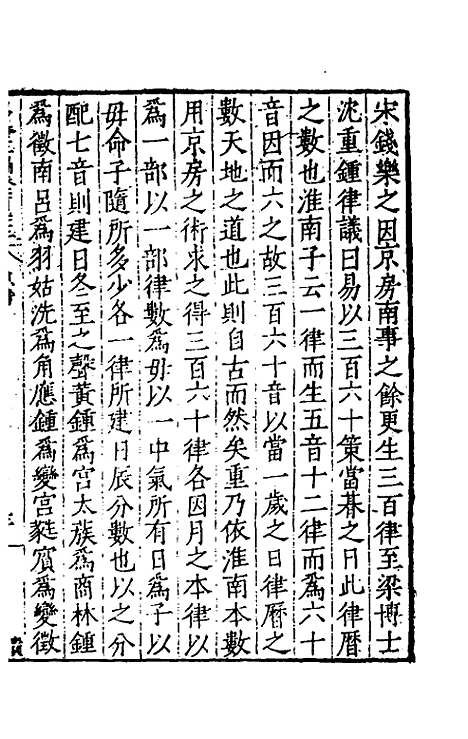 宋錢樂之因京房南事之餘更生三百律至梁博士
沈重鍾律議曰易以三百六十策當朞之日此律曆
之數也淮南子云一律而生五音十二律而爲六十
音因而六之故三百六十音以當一歲之日律曆之
數天地之道也此則自古而然矣重乃依淮南本數
用京房之術求之得三百六十律各因月之本律以
爲一部以一部律數爲母以一中氣所有日爲子以
母命子隨所多少各一律所建日辰分數也以之分
配七音則建日冬至之聲黃鍾爲宮太蔟爲商林鍾
爲徵南呂爲羽姑洗爲角應鍾爲變宮蕤賓爲變徵